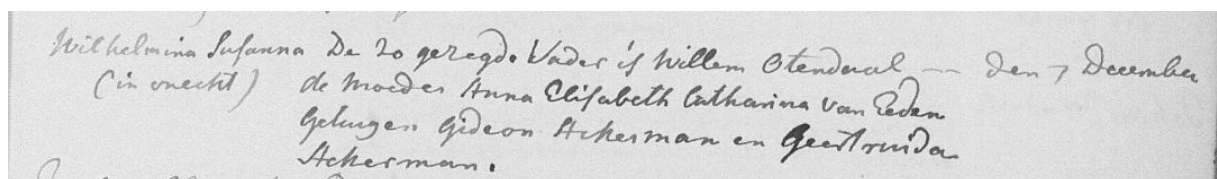 Wilhelmina Susanna De zo gezegde Vader is Willem Otendaal — den 7 December
(in onecht) de Moeder Anna Elisabeth Catharina van Eeden
Getuigen Gideon Ackerman en Geertruida
Ackerman.